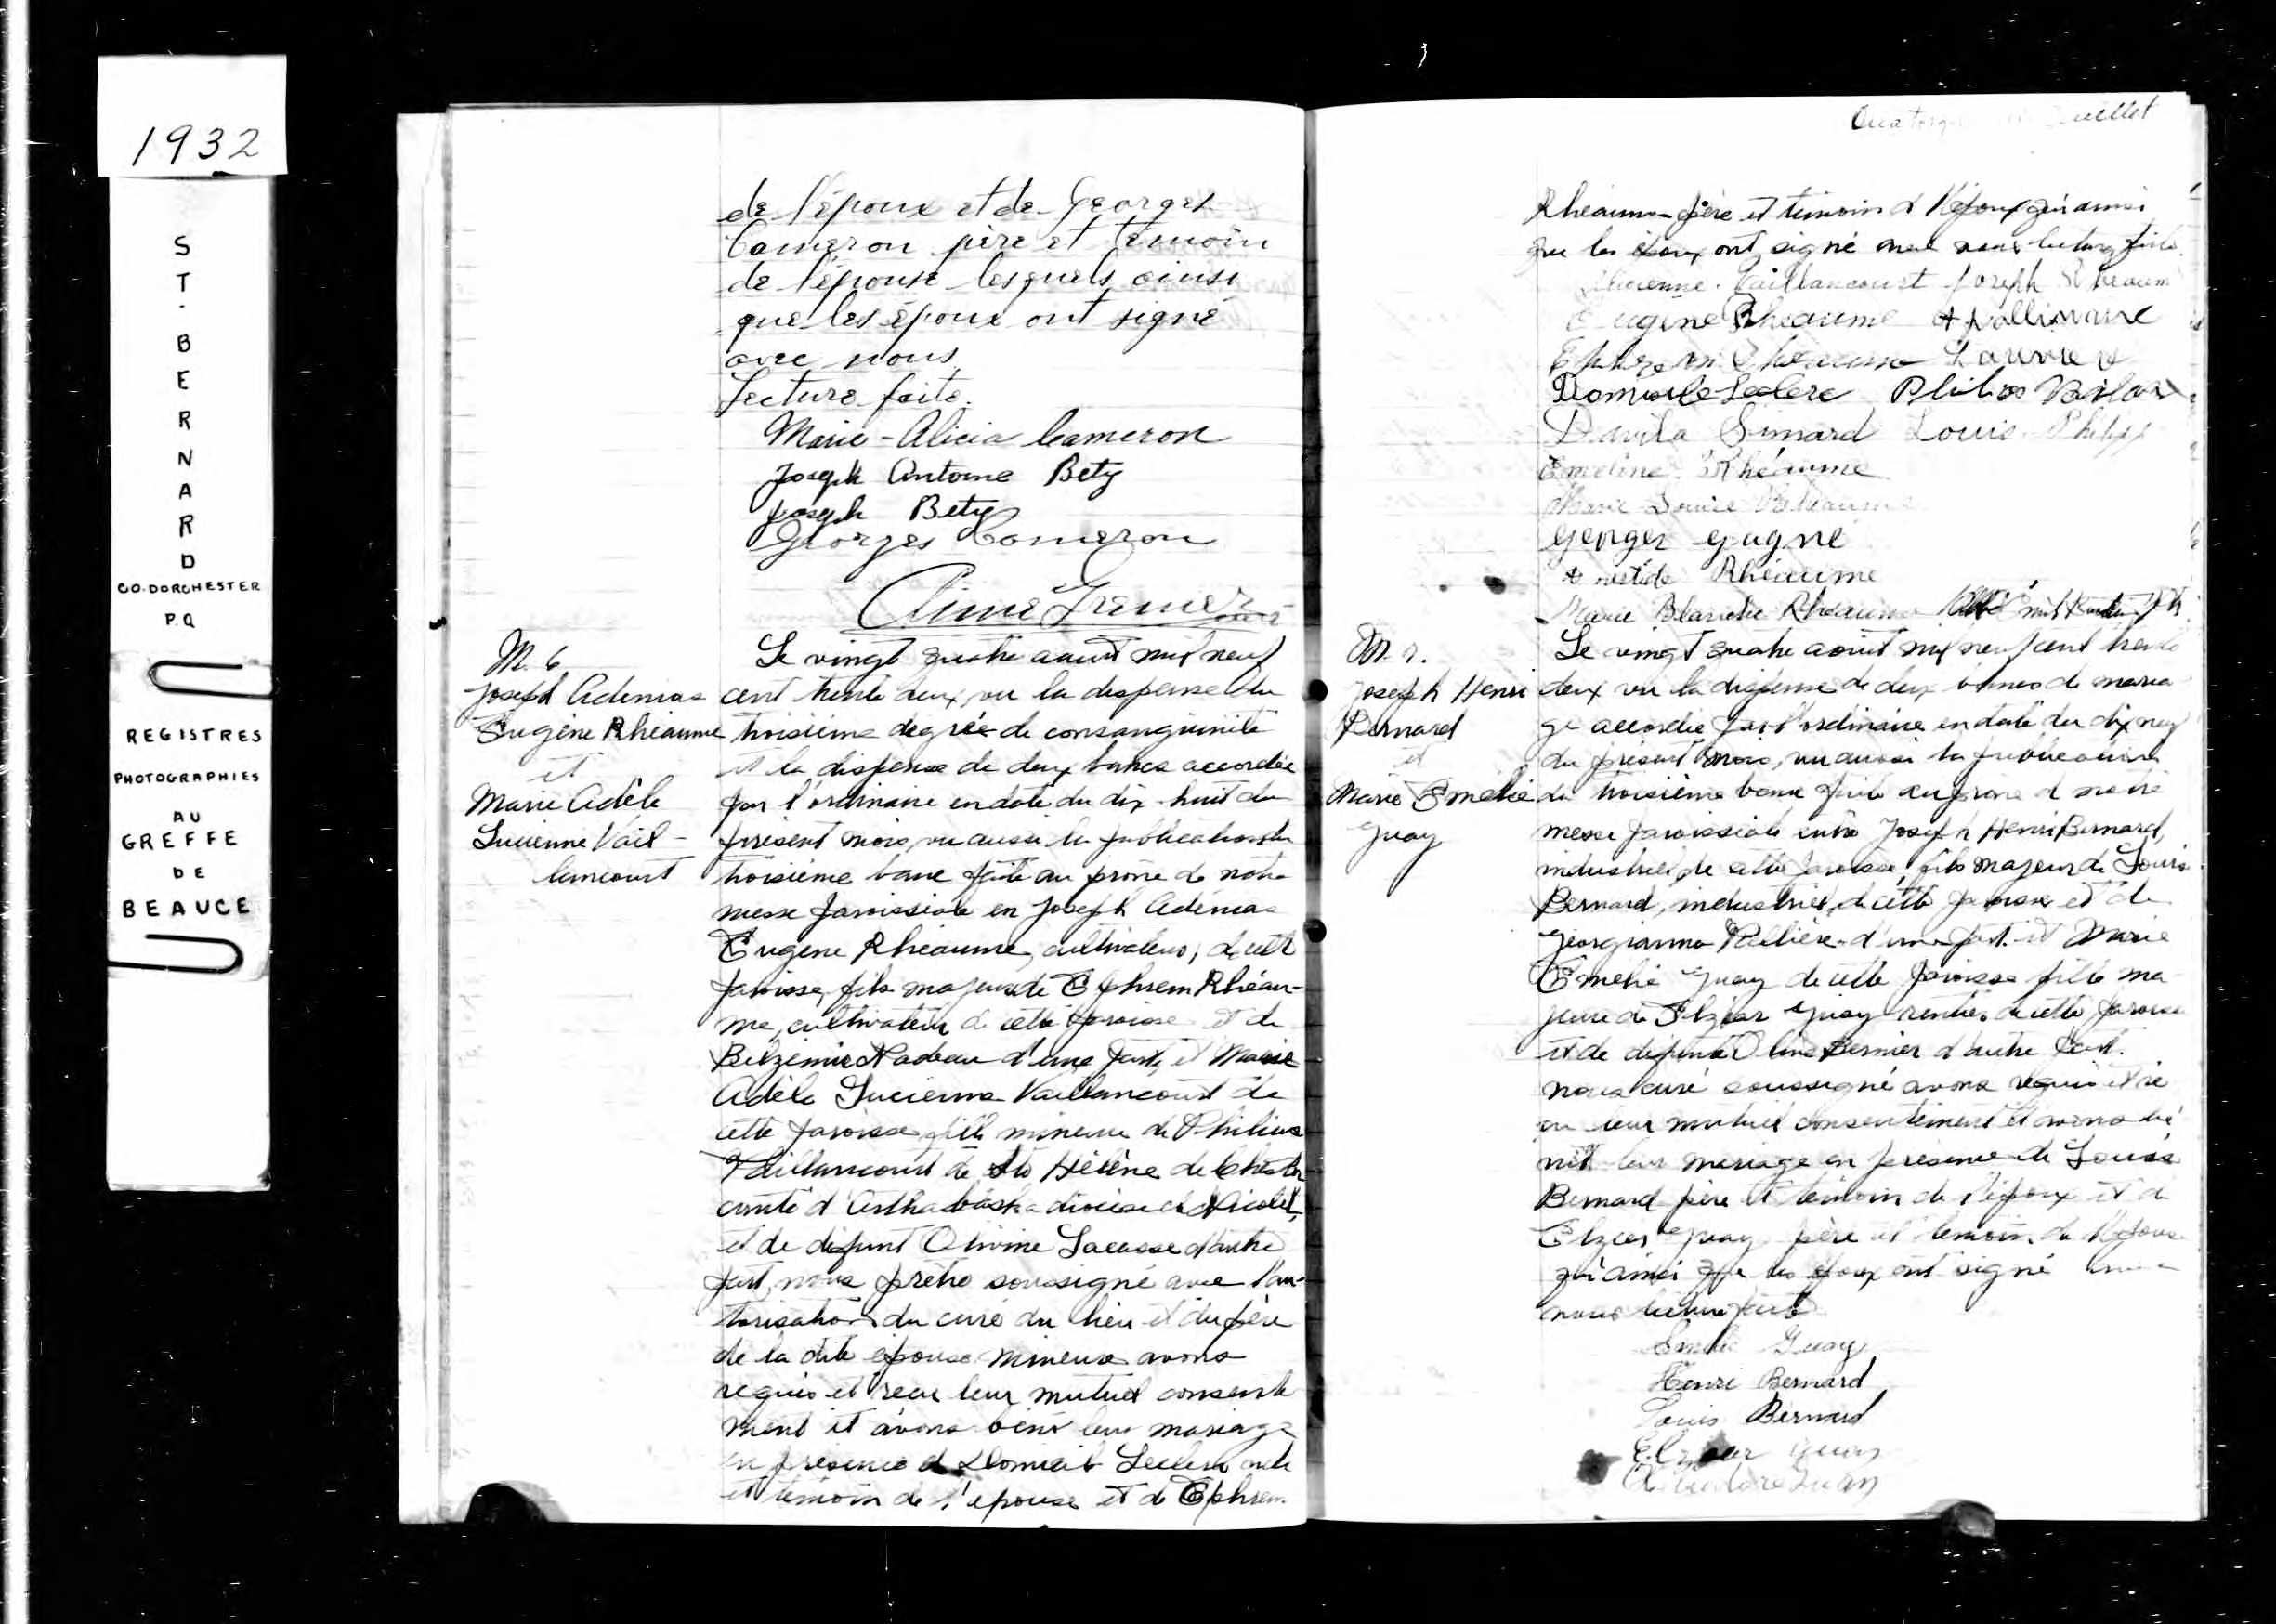 1932
ST. BERNARD
CO. DORCHESTER
P.Q
REGISTRES
PHOTOGRAPHIES
AU
GREFFE
DE
BEAUCE
de l'époux et de Georges
Cameron père et témoin
de l'épouse lesquels ainsi
que les époux ont signé
avec nous.
Lecture faite.
Marie-Alicia Cameron
Joseph Antoine Bety
Joseph Bety
Georges Cameron
M. 6
Joseph Ademas
Eugène Rhéaume
et
Marie Adèle
Lucienne Vail-
lancourt
Le vingt quatre août mil neuf
cent trente deux, vu la dispense du
troisième degrée de consanguinité
et la dispense de deux bancs accordée
par l'ordinaire en date du dix-huit du
présent mois, vu aussi la publication du
troisième banc faite au prône de notre
messe paroissiale en Joseph Ademas
Eugene Rhéaume, cultivateur, de cette
paroisse, fils majeur de Ephrem Rhéau-
me, cultivateur de cette paroisse et de
Belzemire Nadeau d'une part, et Marie
Adèle Lucienne Vaillancourt de
cette paroisse fille mineure de Philias
Vaillancourt de Ste Hélène de Chester
comté d'Arthabaska diocèse de Nicolet,
et de défunt Olivine Lacasse d'autre
part, nous prêtre soussigné avec l'au-
torisation du curé du lieu et du père
de la dite épouse mineure avons
requis et reçu leur mutuel consente
ment et avons béni leur mariage
en présence de Domicile Leclerc oncle
et témoin de l'épouse et de Ephrem
Quatorze Juillet
Rhéaume père et témoin de l'époux qui ainsi
que les époux ont signé avec nous lecture faite.
Lucienne Vaillancourt Joseph Rheaum
Eugène Rhéaume
Ephrem Rheaume
Domicile Leclerc
Davila Simard Louis Philipp
Emeline Rhéaume
Marie Louise Rhéaume
Georges Gagné
Aristide Rhéaume
Marie Blanche Rheaume
M. 7.
Joseph Henri
Bernard
et
Marie Emelie
Guay
Le vingt quatre août mil neuf cent trente
deux vu la dispense de deux bancs de maria
ge accordée par l'ordinaire en date du dix neuf
du présent mois, vu aussi la publication
du troisième banc faite au prone de notre
messe paroissiale entre Joseph Henri Bernard,
industriel, de cette paroisse, fils majeur de Louis
Bernard, industriel, de cette paroisse et de
Georgianna d'une part. et Marie
Emelie Guay de cette paroisse fille ma
jeure de Elzéar Guay rentier de cette paroisse
et de defunte Olive Bernier d'autre part.
nous curé soussigné avons requis et re
çu leur mutuel consentement et avons bé
nit leur mariage en présence de Louis
Bernard père et témoin de l'époux et de
Elzear Guay père et témoin de l'épouse
qui ainsi que les époux ont signé avec
nous lecture faite
Emelie Guay
Henri Bernard
Louis Bernard
Elzear Guay